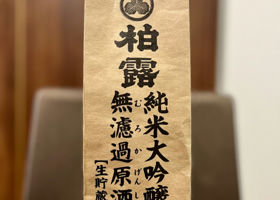 柏露
純米大吟醸
無濾過原酒
むろかげんし
[生貯蔵